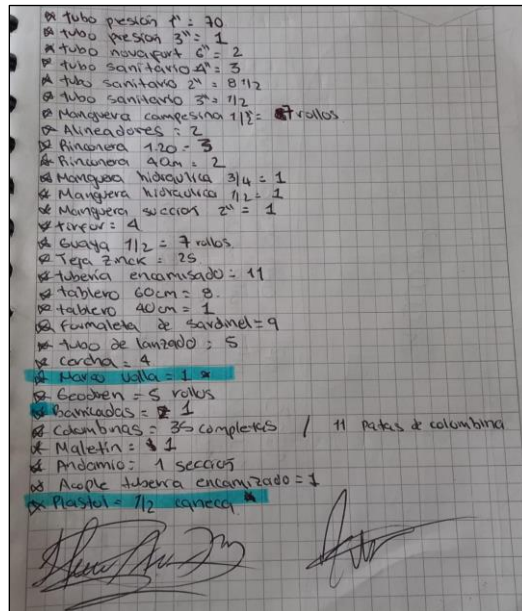 tubo presion 1" = 70
tubo presion 3" = 1
tubo novafort 6" = 2
tubo sanitario 4" = 3
tubo sanitario 2" = 8 1/2
tubo sanitario 3" = 1/2
Manguera campesina 1/2 = 7 rollos
Alineadores = 2
Rinconera 1.20 = 3
Rinconera 40m = 2
Manguera hidraulica 3/4 = 1
Manguera hidraulica 1/2 = 1
Manguera succion 2" = 1
tirfor = 4
Guaya 1/2 = 7 rollos
Teja Zinck = 25
tuberia encamisado = 11
tablero 60cm = 8.
tablero 40cm = 1
formaleta de sardinel = 9
tubo de lanzado = 5
corcha = 4
Marco valla = 1 *
Geodren = 5 rollos
Barricadas = 1
Colombinas = 35 completas / 11 Patas de colombina
Maletin = 1
Andamio = 1 seccion
Acople tuberia encamizado = 1
Plastol = 1/2 caneca *